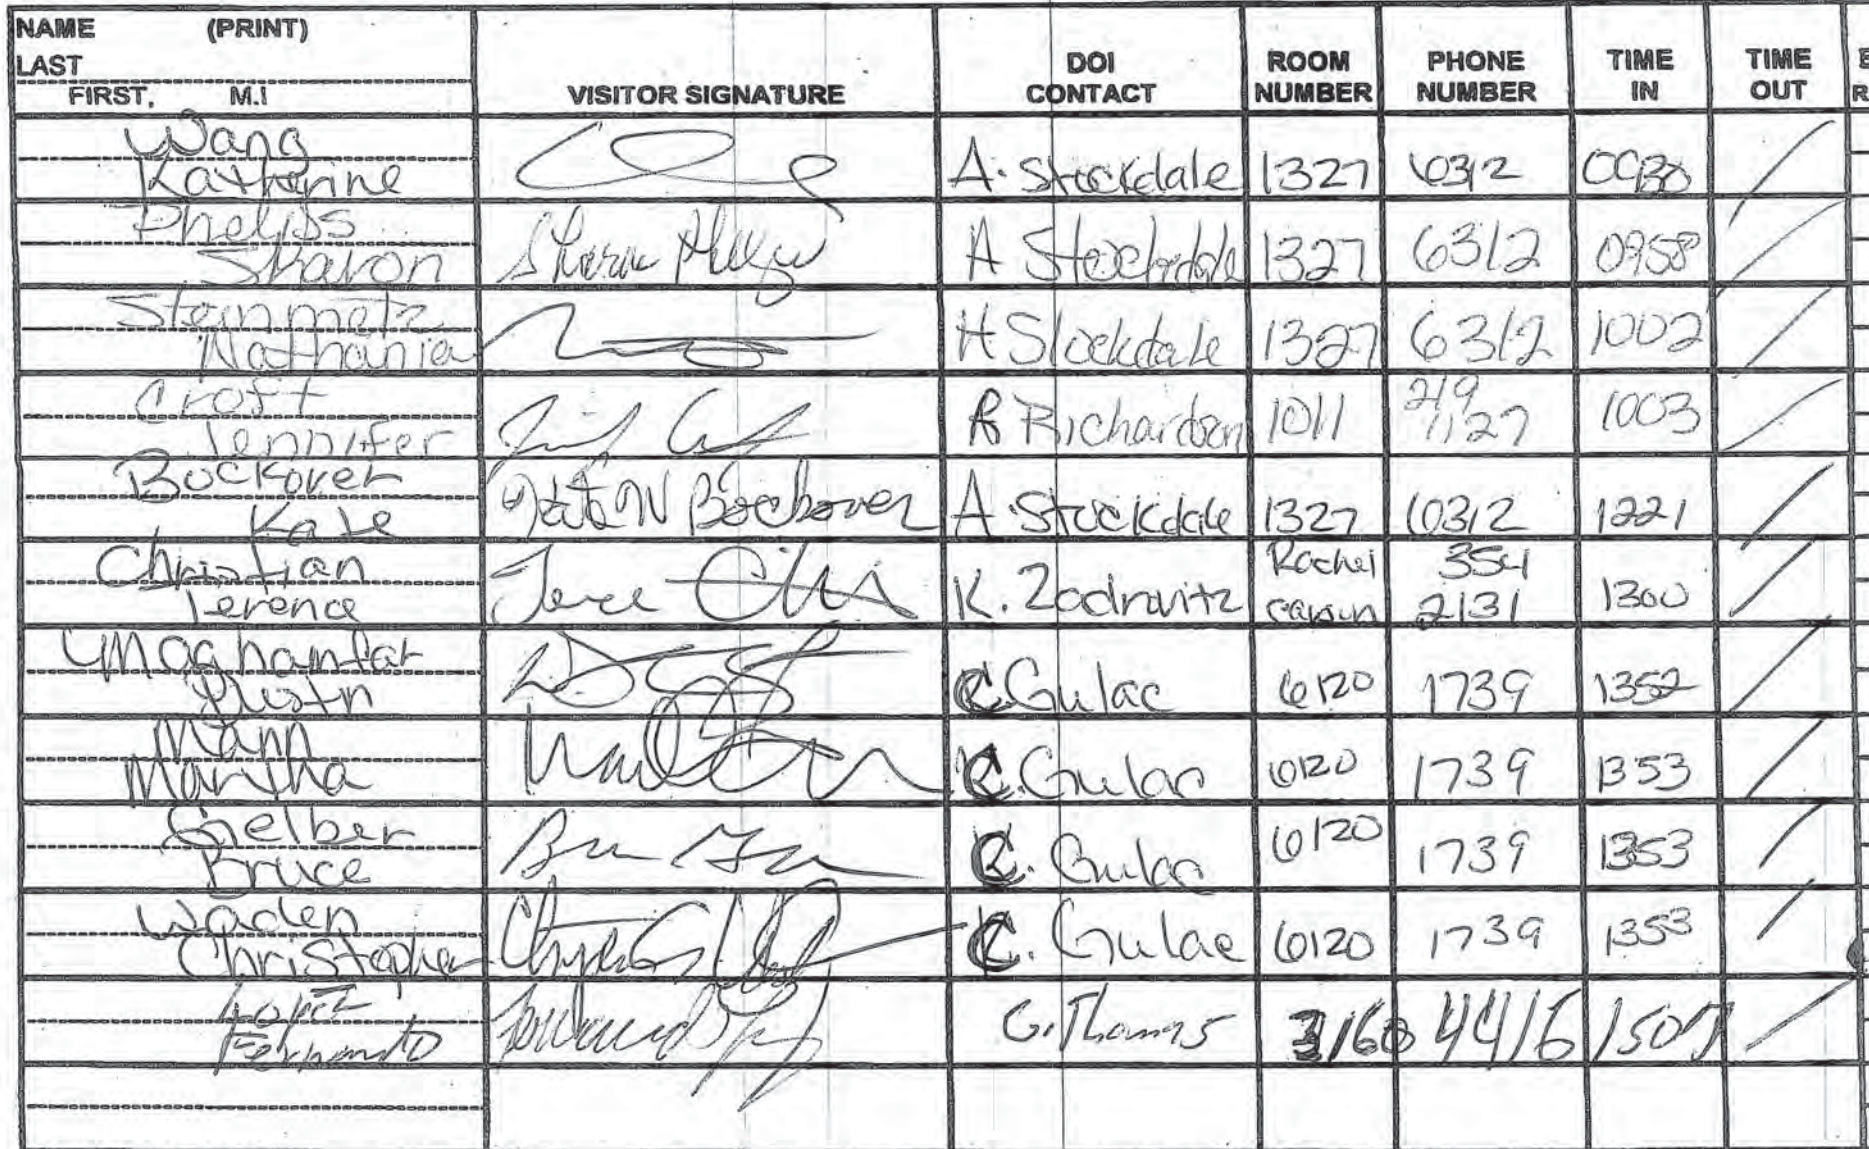 NAME (PRINT)
LAST
FIRST, M.I
VISITOR SIGNATURE
DOI
CONTACT
ROOM
NUMBER
PHONE
NUMBER
TIME
IN
TIME
OUT
Wang
Katherine
A. Stockdale 1327 6312
Phelps
Sharon
A Stockdale 1327 6312 0958
Steinmetz
Nathania
H Slockdale 1327 6312 1002
Croft
Jennifer
R Richardson 1011 219 1127 1003
Bockover
Kate
Kate W Bockover
A. Stockdale 1327 6312 1221
Christian
Terence
K. Zodrovitz Rachel Carson 354 2131 1300
Moghamfar
Dustn
C. Gulac 6120 1739 1352
Mann
Martha
C. Gulac 6120 1739 1353
Gelber
Bruce
C. Gulac 6120 1739 1353
Waden
Christopher
C. Gulac 6120 1739 1353
Lopez
Fernando
G. Thomas 3160 4416 1507